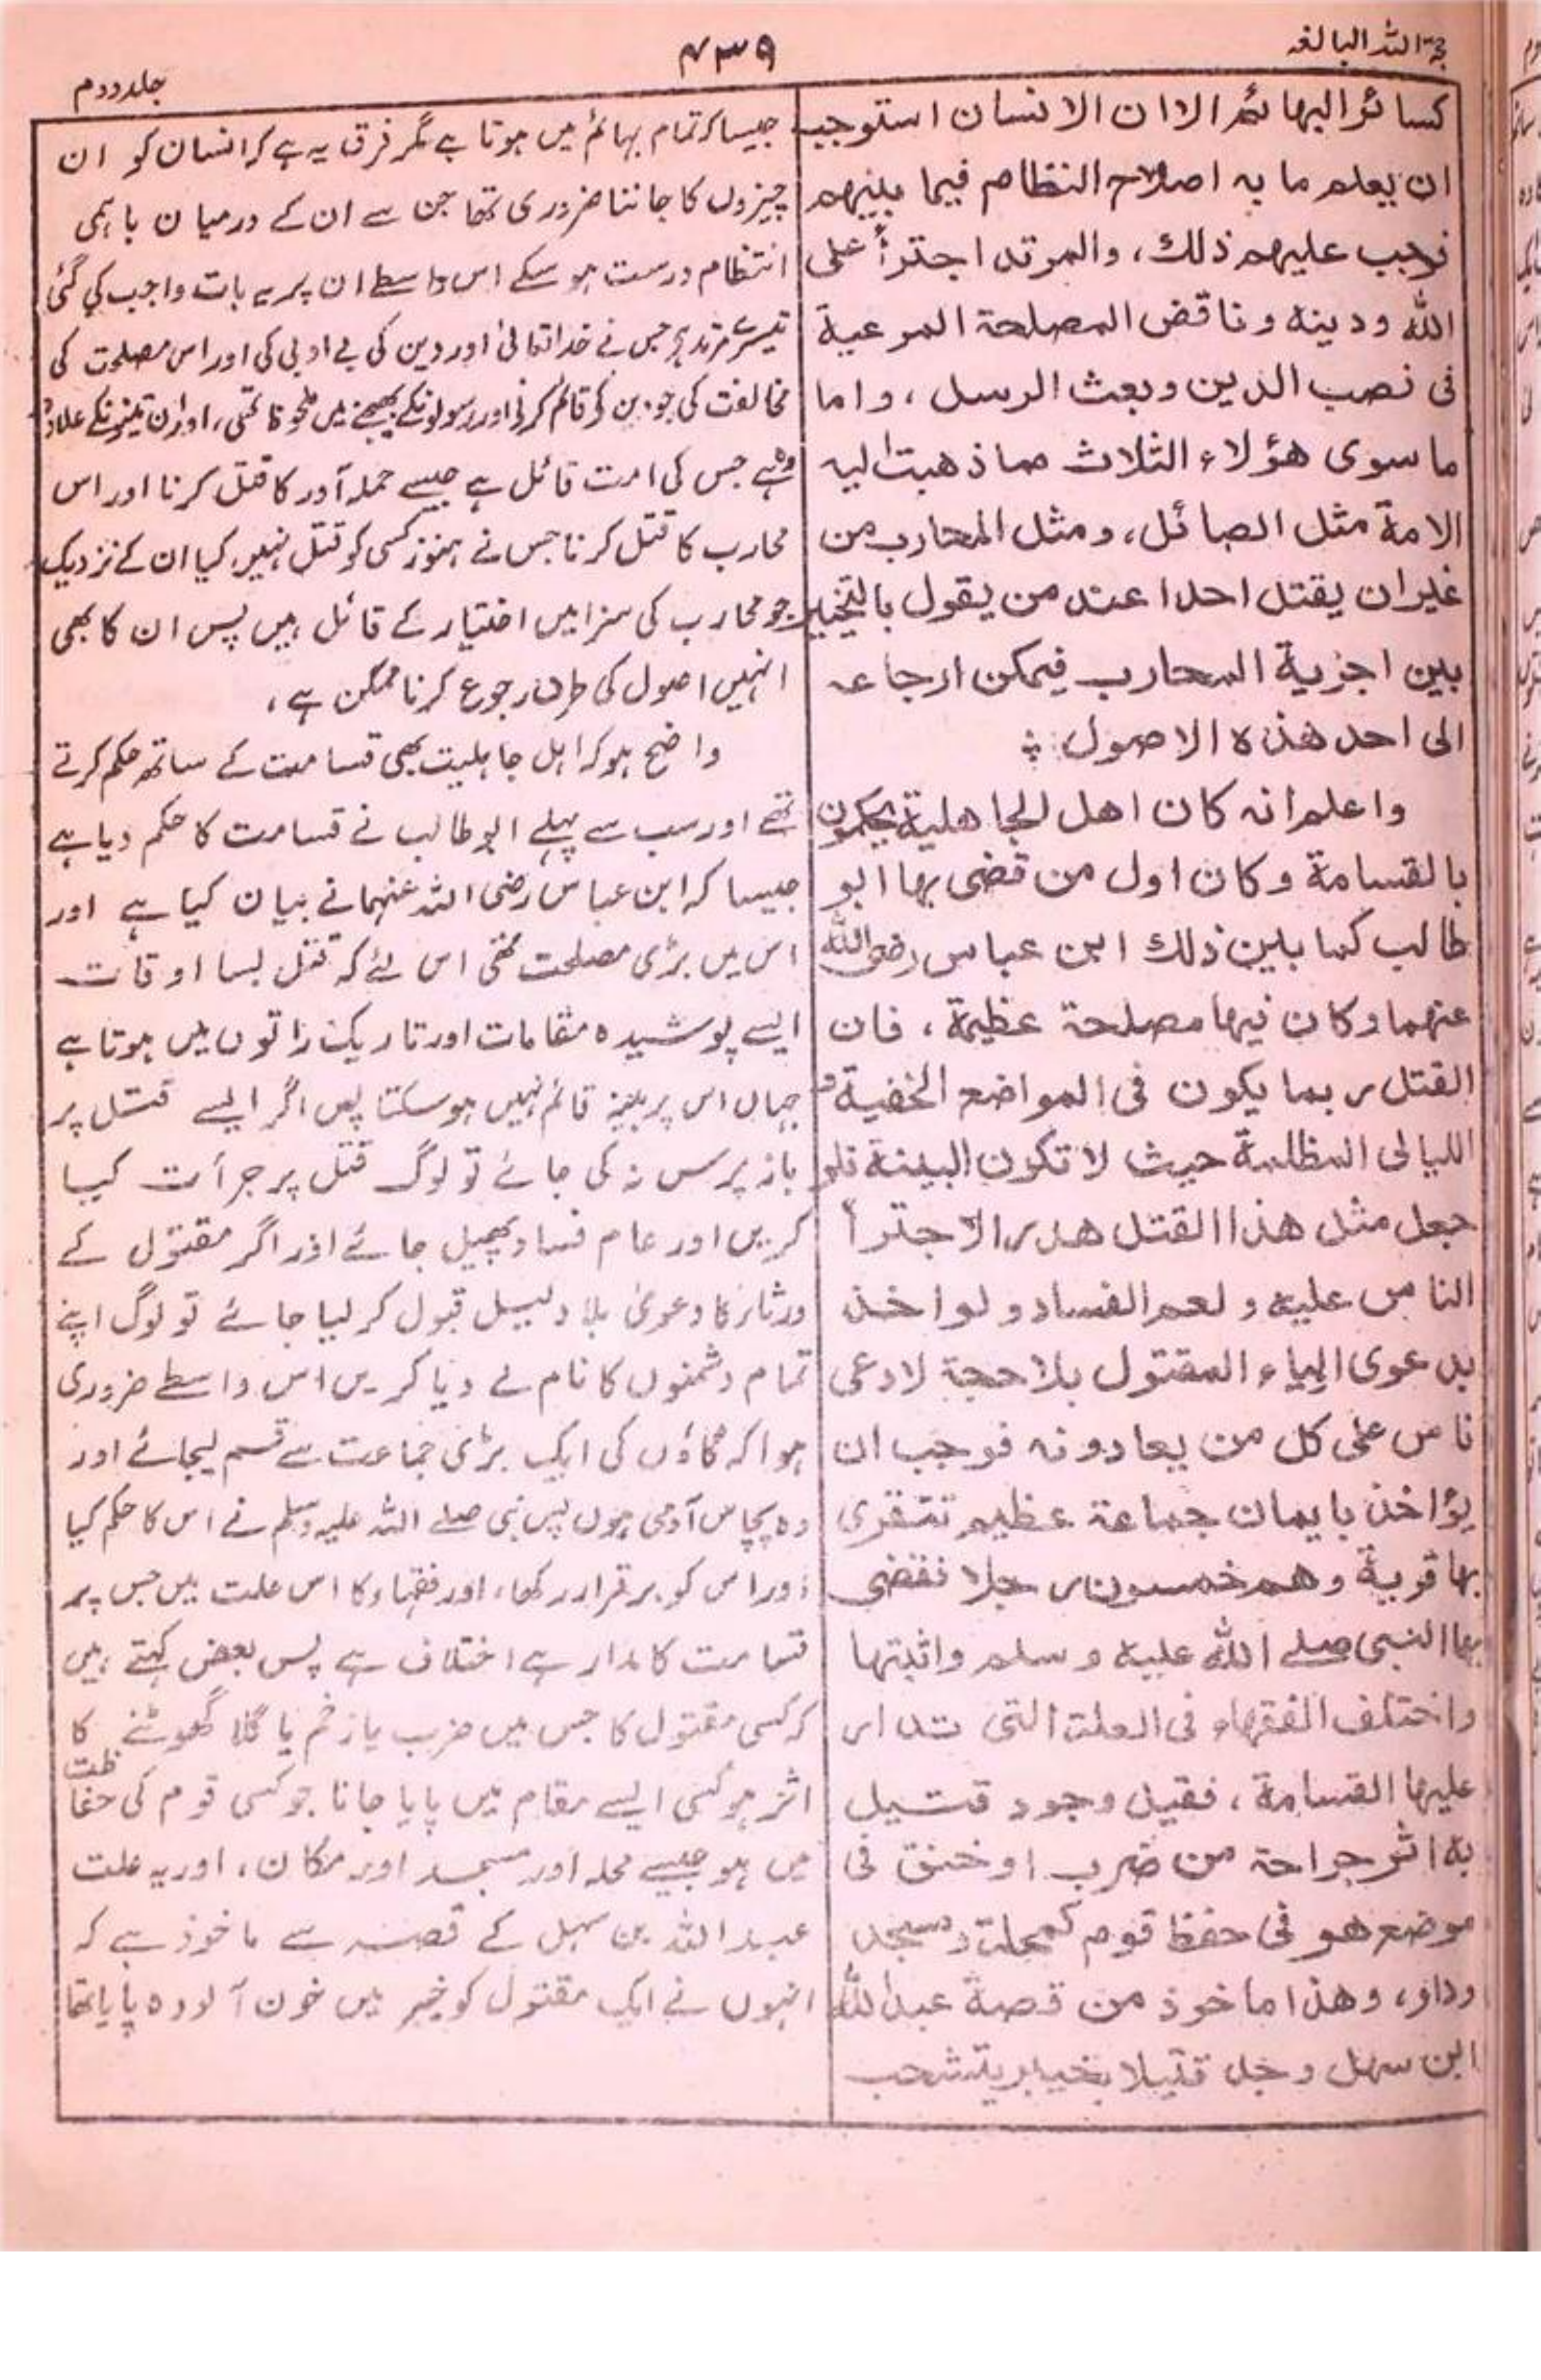 حجۃ اللہ البالغہ
۷۳۹
جلد دوم
كسائر البهائم الا ان الانسان استوجب
ان يعلم ما به اصلاح النظام فيما بينهم
فوجب عليهم ذلك، والمرتد اجترأ على
الله ودينه وناقض المصلحة المرعية
فى نصب الدين وبعث الرسل، واما
ما سوى هؤلاء الثلاث مما ذهبت اليه
الامة مثل الصائل، ومثل المحارب من
غير ان يقتل احدا عند من يقول بالتخيير
بين اجزية المحارب فيمكن ارجاعه
الى احد هذه الاصول
واعلم انه كان اهل الجاهلية يحكمون
بالقسامة وكان اول من قضى بها ابو
طالب كما بين ذلك ابن عباس رضى الله
عنهما وكان فيها مصلحة عظيمة، فان
القتل ربما يكون فى المواضع الخفية و
الليالى المظلمة حيث لا تكون البينة فلو
جعل مثل هذا القتل هدرا لاجترأ
الناس عليه ولعم الفساد ولو اخذ
بدعوى اولياء المقتول بلا حجة لادعى
ناس على كل من يعادونه فوجب ان
يؤاخذ بايمان جماعة عظيم تتقرى
بها قرية وهم خمسون رجلا فقضى
بها النبى صلے الله عليه وسلم واثبتها
واختلف الفقهاء فى العلة التى تدار
عليها القسامة، فقيل وجود قتيل
به اثر جراحة من ضرب او خنق فى
موضع هو فى حفظ قوم كمحلة ومسجد
ودار، وهذا ماخوذ من قصة عبد الله
ابن سهل وجد قتيلا بخيبر يتشحب
جیسا کہ تمام بہائم میں ہوتا ہے مگر فرق یہ ہے کہ انسان کو ان
چیزوں کا جاننا ضروری تھا جن سے ان کے درمیان باہمی
انتظام درست ہو سکے اس واسطے ان پر یہ بات واجب کی گئی
تیسرے مرتد ہے جس نے خدا تعالیٰ اور دین کی بے ادبی کی اور اس مصلحت کی
مخالفت کی جو دین کو قائم کرنے اور رسولونکے بھیجنے میں ملحوظ تھی، اور ان تینونکے علاوہ
وہ ہے جس کی امت قائل ہے جیسے حملہ آور کا قتل کرنا اور اس
محارب کا قتل کرنا جس نے ہنوز کسی کو قتل نہیں کیا ان کے نزدیک
جو محارب کی سزا میں اختیار کے قائل ہیں پس ان کا بھی
انہیں اصول کی طرف رجوع کرنا ممکن ہے،
واضح ہو کہ اہل جاہلیت بھی قسامت کے ساتھ حکم کرتے
تھے اور سب سے پہلے ابو طالب نے قسامت کا حکم دیا ہے
جیسا کہ ابن عباس رضی اللہ عنہما نے بیان کیا ہے اور
اس میں بڑی مصلحت تھی اس لئے کہ قتل بسا اوقات
ایسے پوشیدہ مقامات اور تاریک راتوں میں ہوتا ہے
جہاں اس پر بینہ قائم نہیں ہو سکتا پس اگر ایسے قتل پر
باز پرس نہ کی جائے تو لوگ قتل پر جرأت کیا
کریں اور عام فساد پھیل جائے اور اگر مقتول کے
ورثاء کا دعویٰ بلا دلیل قبول کر لیا جائے تو لوگ اپنے
تمام دشمنوں کا نام لے دیا کریں اس واسطے ضروری
ہوا کہ گاؤں کی ایک بڑی جماعت سے قسم لیجائے اور
وہ پچاس آدمی ہوں پس نبی صلے اللہ علیہ وسلم نے اس کا حکم کیا
اور اس کو برقرار رکھا، اور فقہاء کا اس علت میں جس پر
قسامت کا مدار ہے اختلاف ہے پس بعض کہتے ہیں
کہ کسی مقتول کا جس میں ضرب یا زخم یا گلا گھوٹنے کا
اثر ہو کسی ایسے مقام میں پایا جانا جو کسی قوم کی حفاظت
میں ہو جیسے محلہ اور مسجد اور مکان، اور یہ علت
عبد اللہ بن سہل کے قصہ سے ماخوذ ہے کہ
انہوں نے ایک مقتول کو خیبر میں خون آلودہ پایا تھا